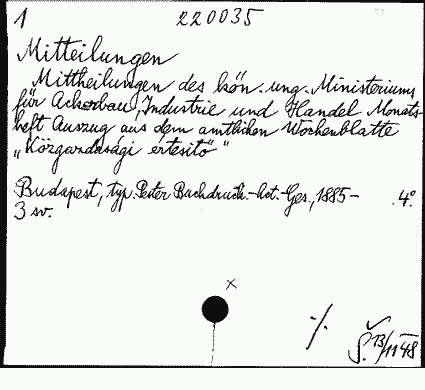 1 220035
Mitteilungen
Mittheilungen des kön. ung. Ministeriums
für Ackerbau, Industrie und Handel Monats-
heft Auszug aus dem amtlichen Wochenblatte
„Közgazdasági értesitö"
Budapest, typ. Pester Buchdruck.-Act.-Ges, 1885- 4°.
3 sv.
x
·/.
Š. 13/11 48